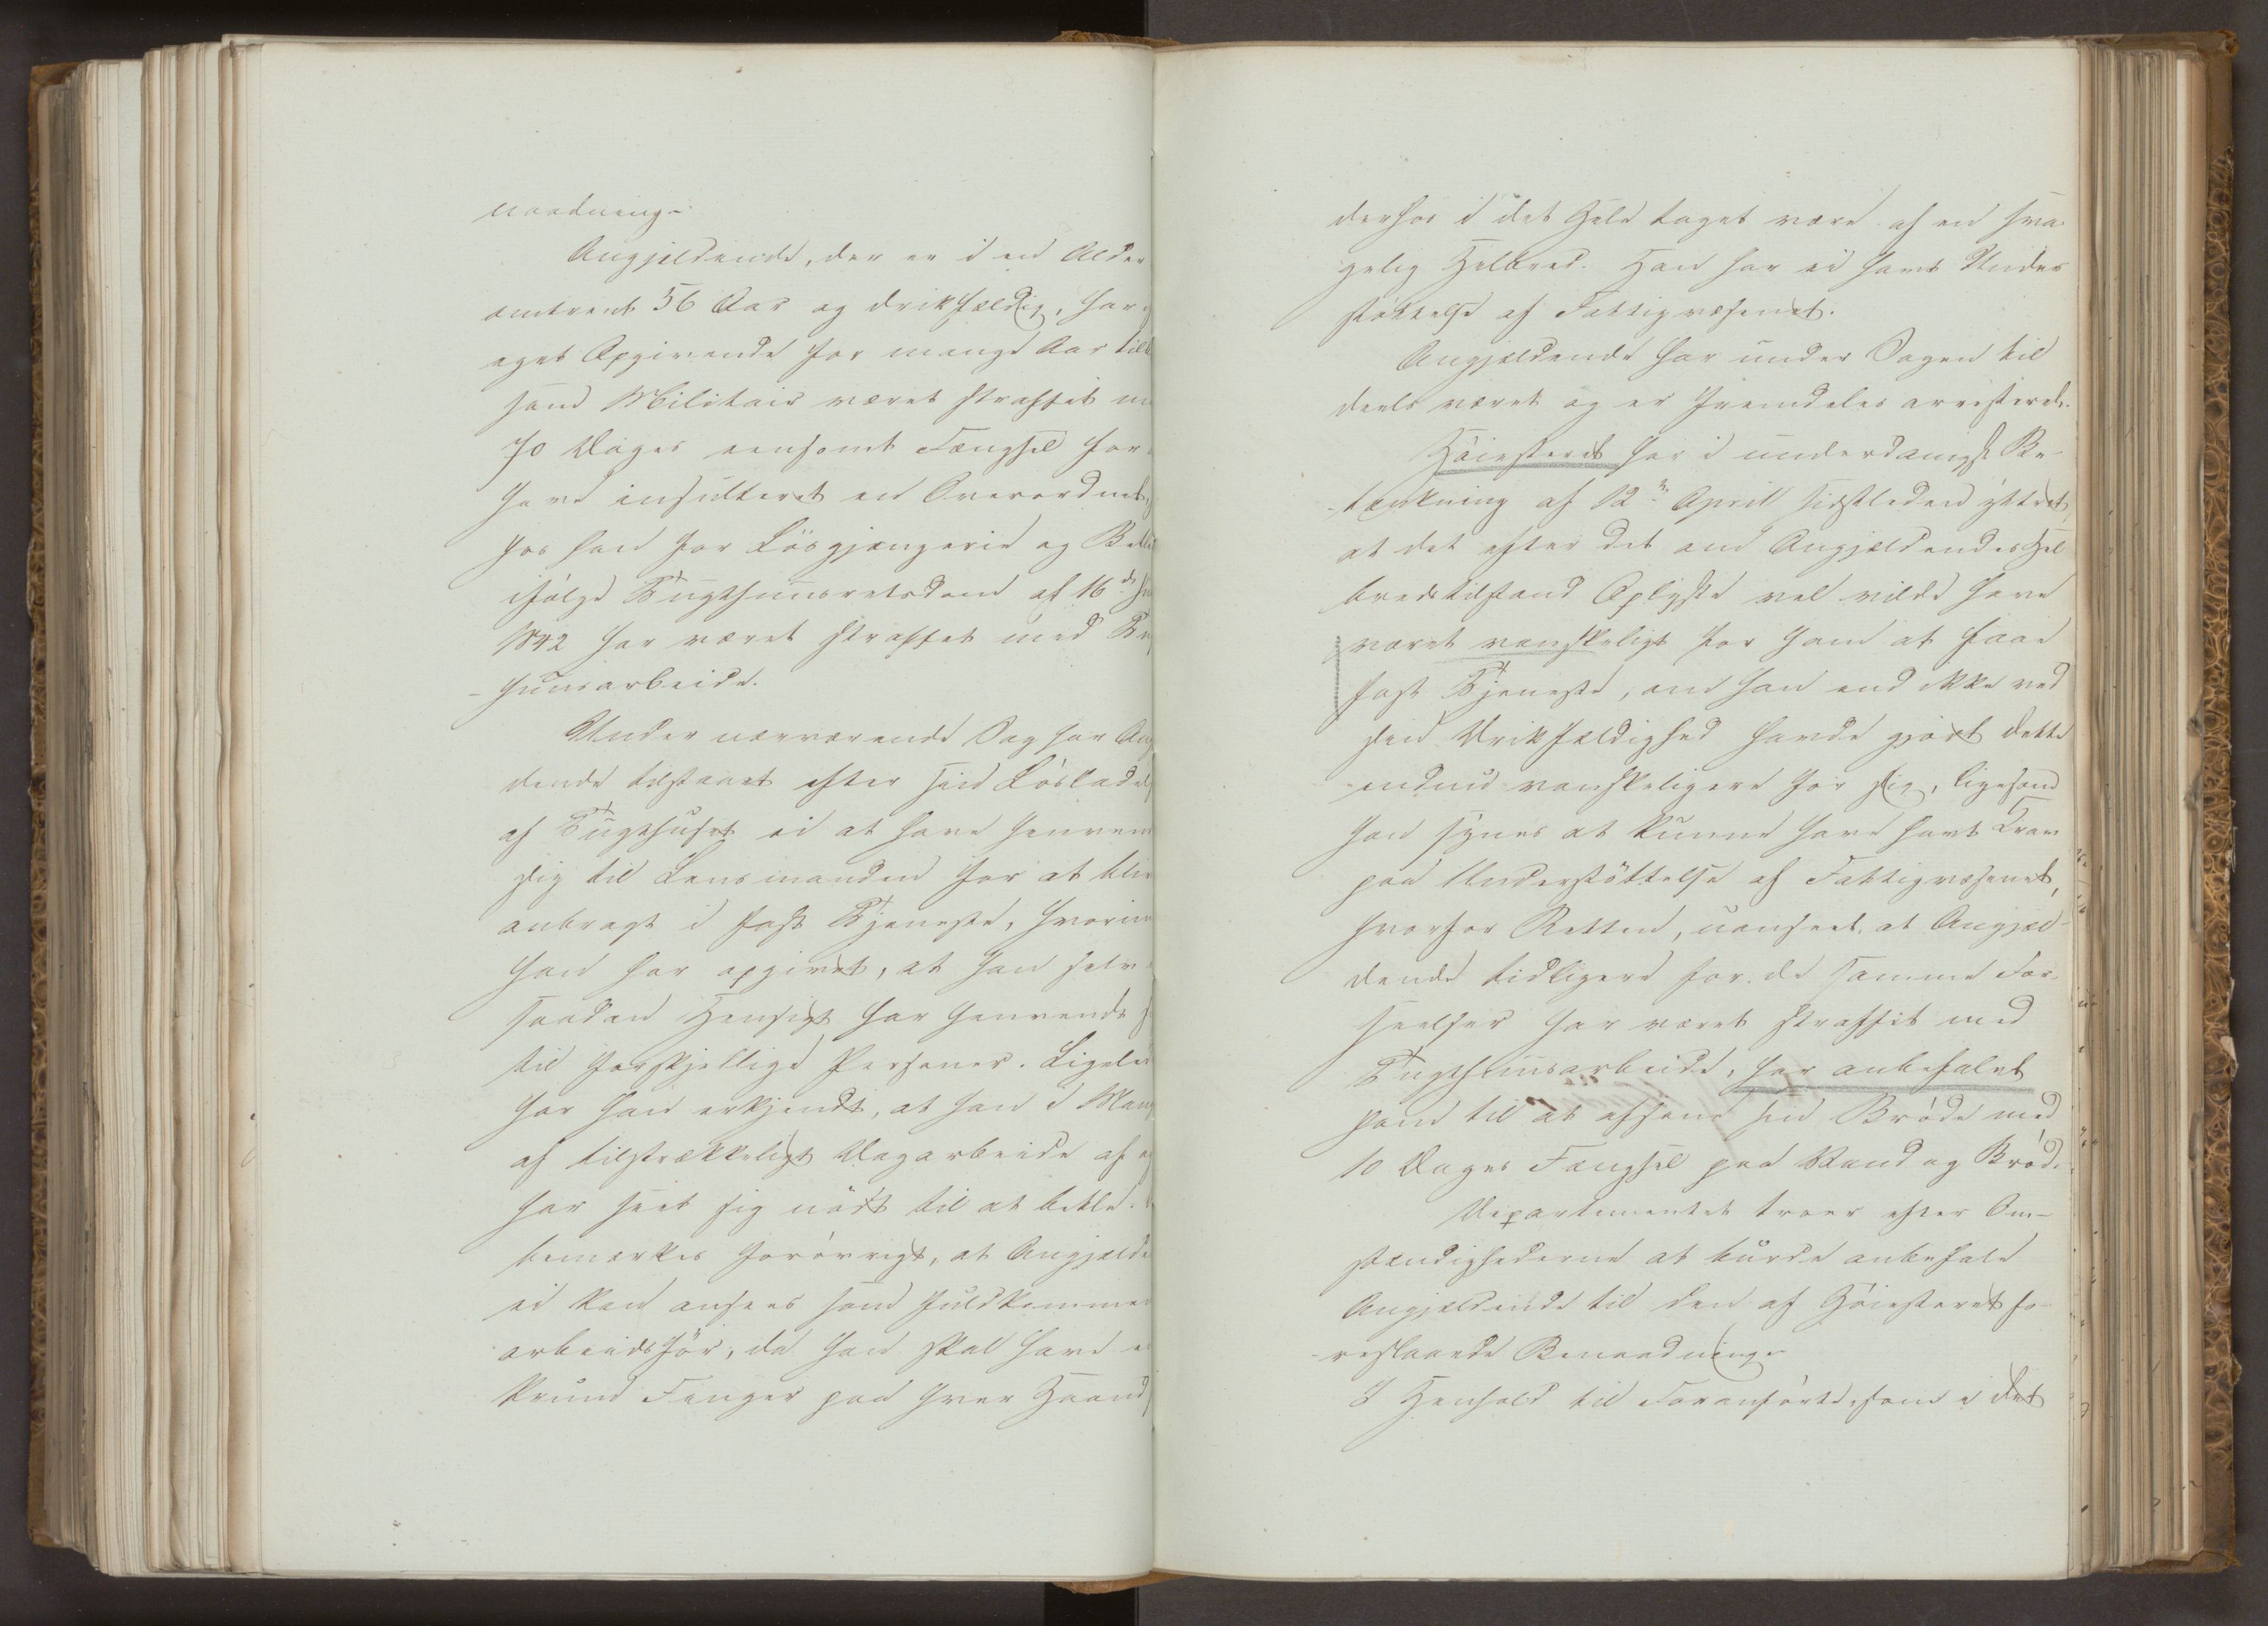 naadning.
Angjeldende, der er i en Alder
omtrent 56 Aar og drikfældig, har
eget Opgivende for mange Aar til
som Militair været straffet m
70 Dages eensomt Fængsel for
have insulteret en Overordnet,
hos han for Løsgjængerie og Betl
ifølge Tugthuusretsdom af 16de
1842 har været straffet med
-huusarbeide.
Under nærværende Sag har Ang
dende tilstaaet efter sin Løslad
af Tugthuset ei at have henven
sig til Lensmanden for at bliv
anbragt i fast Tjeneste, hvorim
han har opgivet, at han selv i
saadan Hensigt har henvendt
til forskjellige Personer. Ligele
har han erkjendt, at han i Mang
af tilstrækkeligt Dagarbeide af
har seet sig nødt til at betle.
bemærkes forøvrigt, at Angjælde
ei kan ansees som fuldkommen
arbeidsfør, da han skal have
krum Finger paa hver Haand
derhos i det Hele taget være af en sva
gelig Helbred. Han har ei havt Under
støttelse af Fattigvæsenet.
Angjældende har under Sagen til
deels været og er fremdeles arresteret.
Høiesteret har i underdanigst Be-
-tænkning af 12te April sidstleden yttret,
at det efter det om Angjældendes Hel
bredstilstand Oplyste vel vilde have
været vanskeligt for ham at faae
fast Tjeneste, om han end ikke ved
sin Drikfældighed havde gjort dette
-endnu vanskeligere for sig, ligesom
han synes at kunne have havt Krav
paa Understøttelse af Fattigvæsenet,
hvorfor Retten, uanseet, at Angjæl-
dende tidligere for de samme For-
seelser har været straffet med
Tugthuusarbeide, har anbefalet
ham til at afsone sin Brøde med
10 Dages Fængsel paa Vand og Brød.
Departementet troer efter Om-
stændighederne at burde anbefale
Angjældende til den af Høiesteret fo-
-reslaaede Benaadning.
I Henhold til Foranførte, som i det